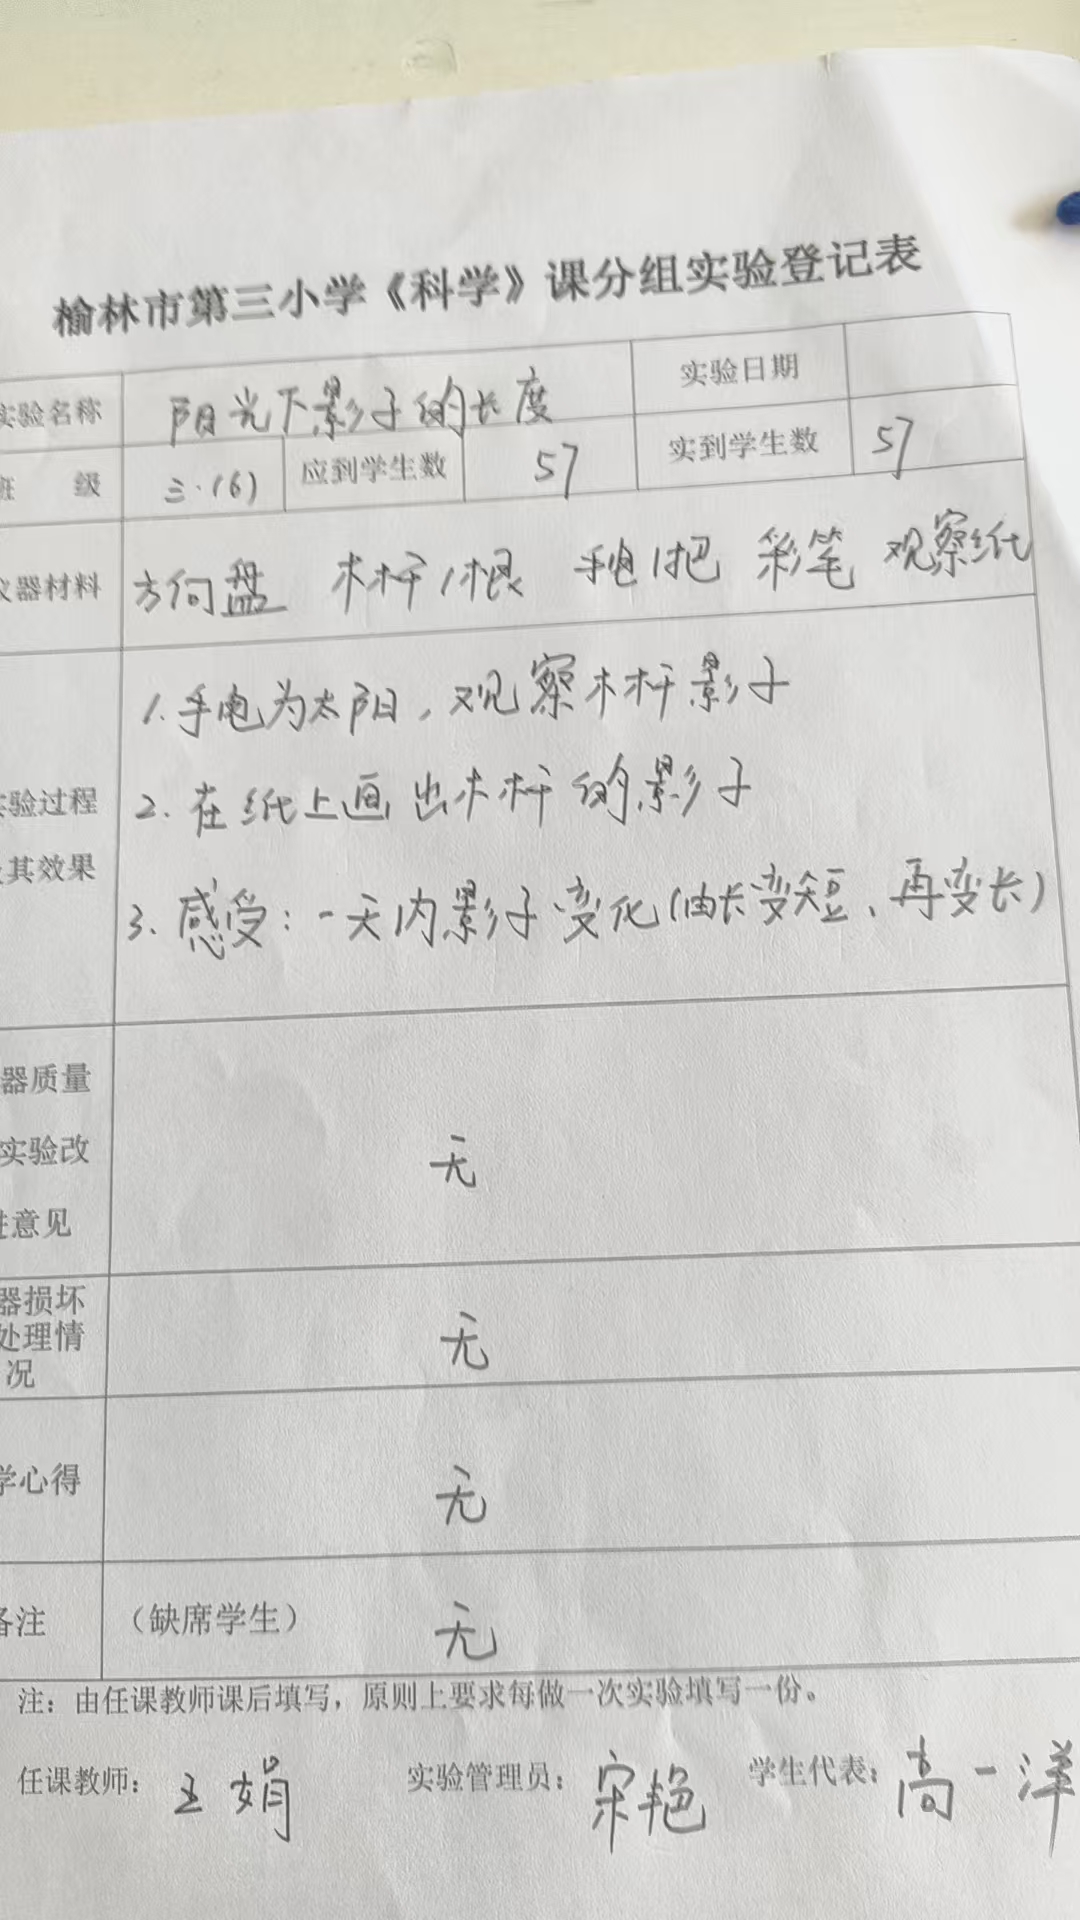 榆林市第三小学《科学》课分组实验登记表
实验名称 阳光下影子的长度 实验日期
班 级 三·(6) 应到学生数 57 实到学生数 57
仪器材料 方向盘 木杆1根 手电1把 彩笔 观察纸
1.手电为太阳,观察木杆影子
2.在纸上画出木杆的影子
实验过程
及其效果
3.感受:一天内影子变化(由长变短、再变长)
器质量
实验改
进意见
无
器损坏
处理情
况
无
学心得 无
备注 (缺席学生) 无
注:由任课教师课后填写,原则上要求每做一次实验填写一份。
任课教师: 王娟 实验管理员: 宋艳 学生代表: 高一洋